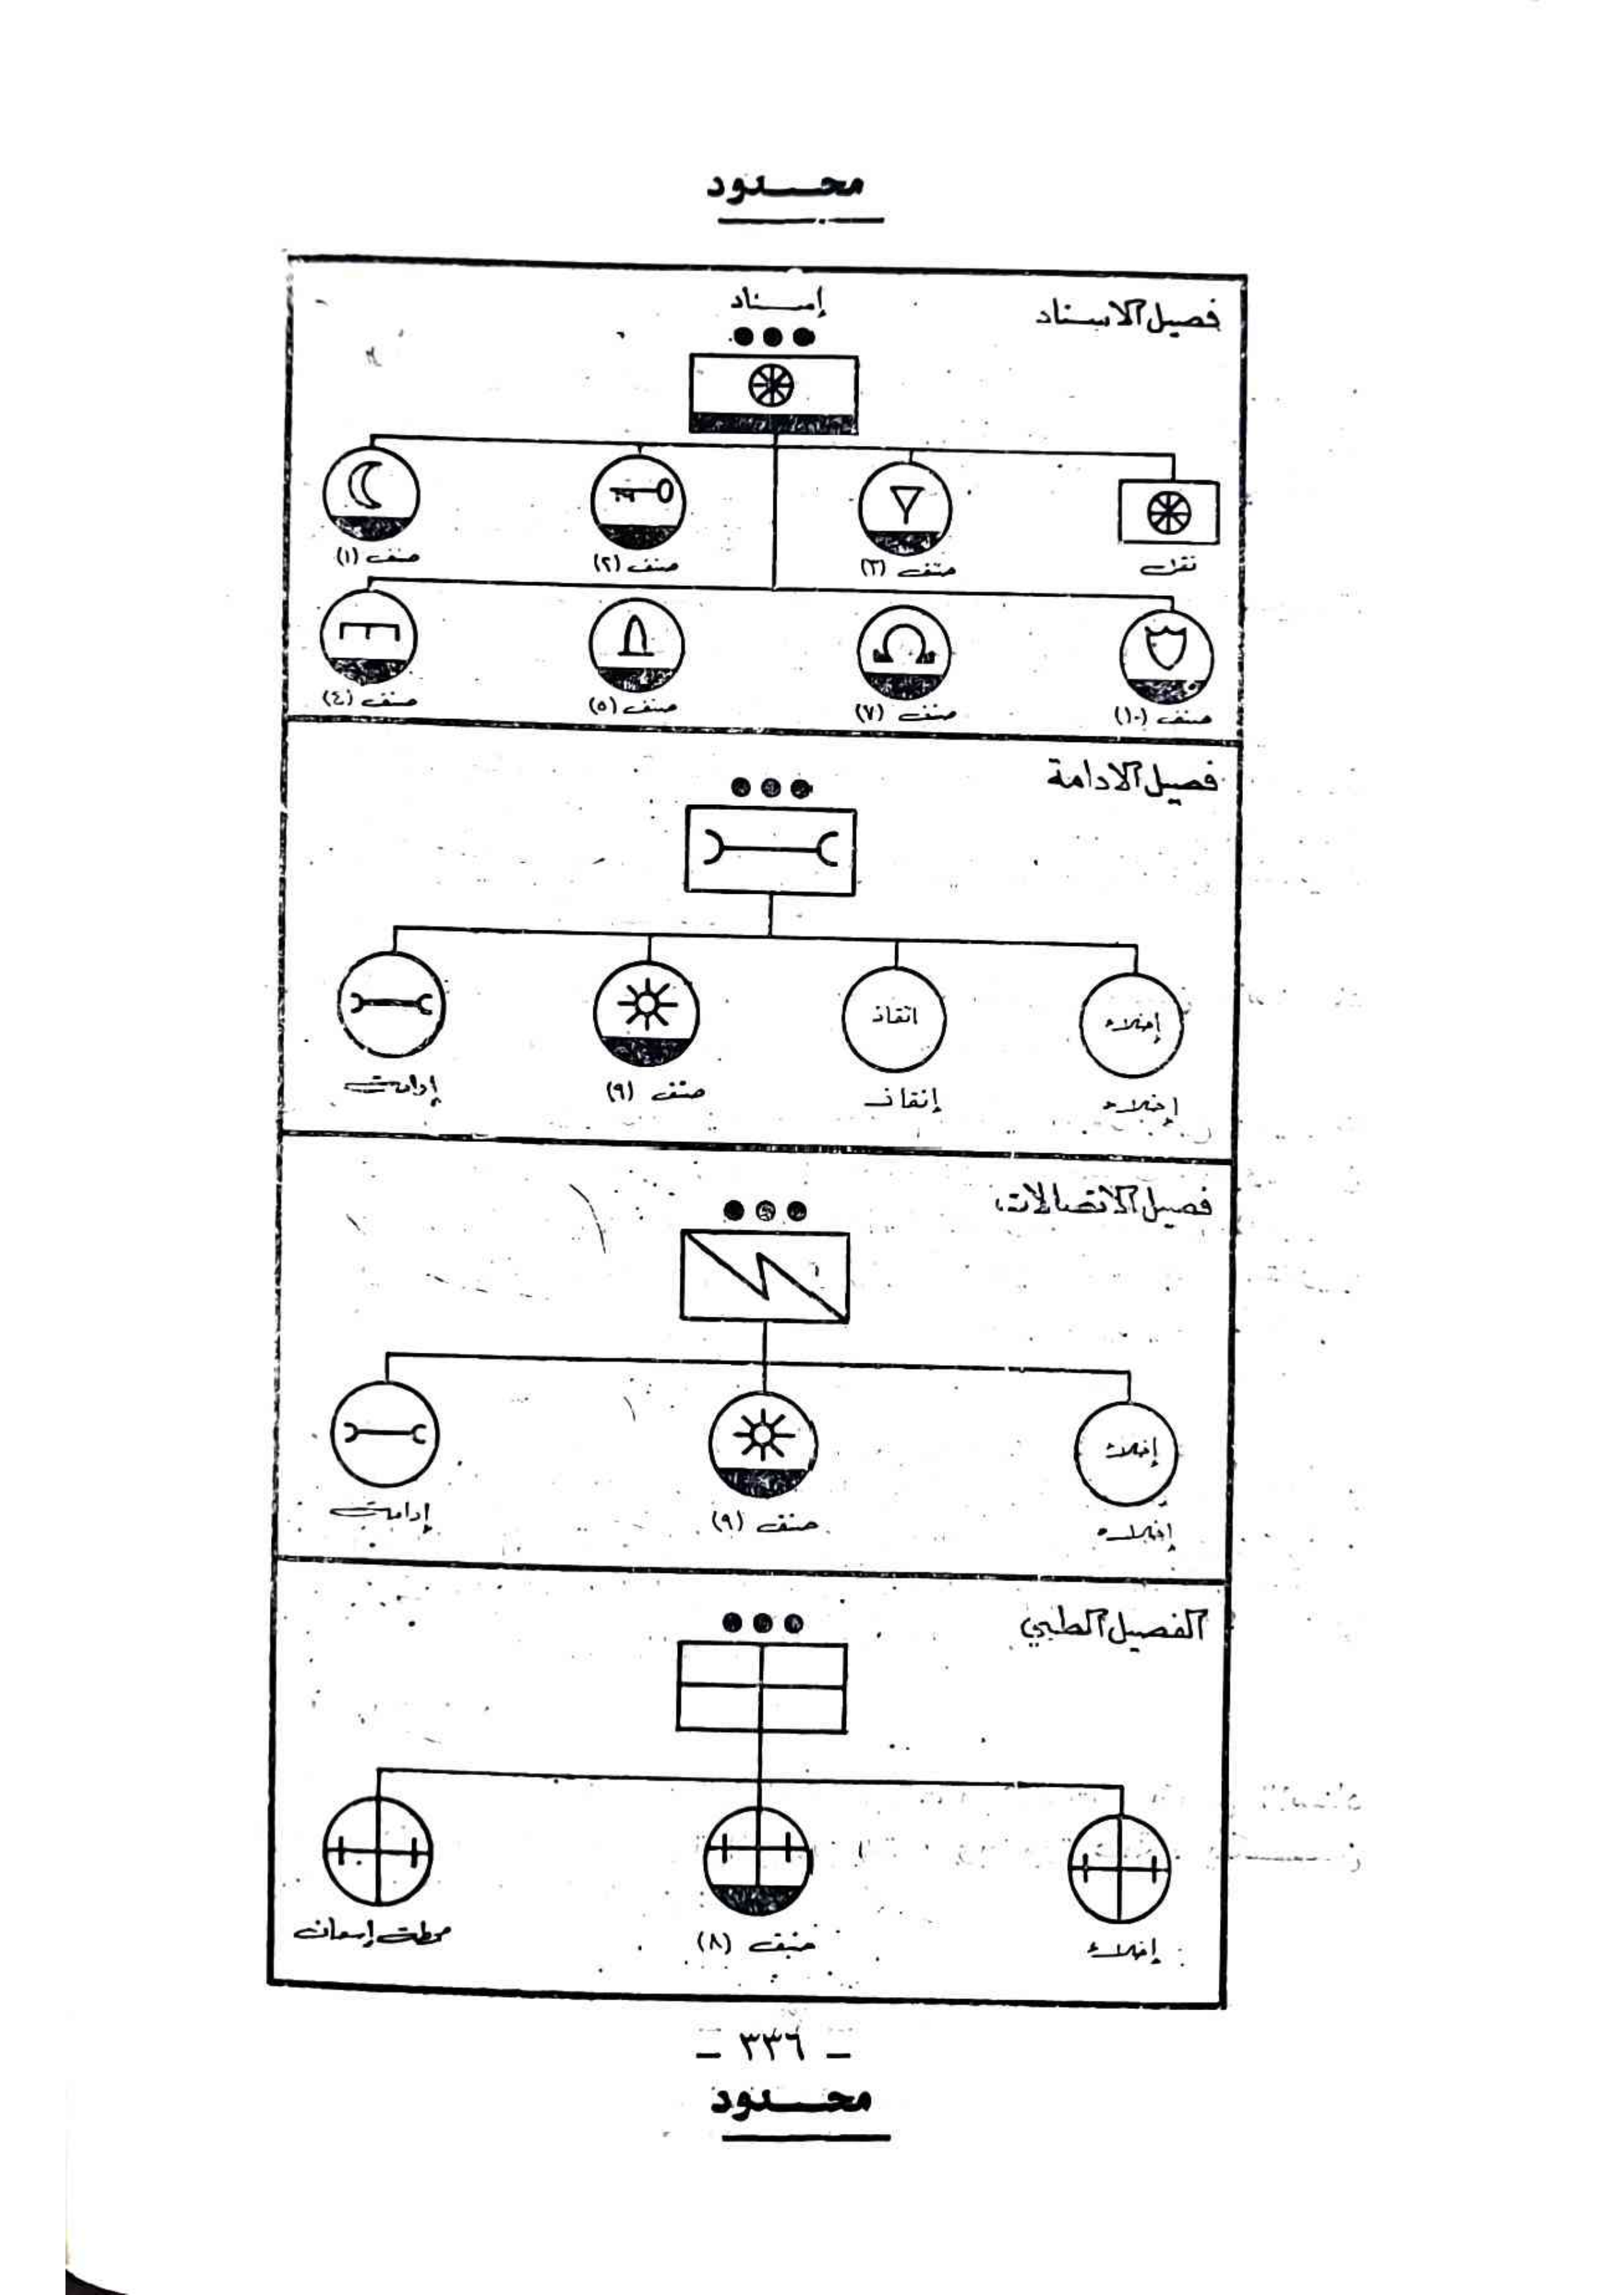 محـــدود
فصيل الاسناد
إسناد
نقل
صنف (٣)
صنف (٢)
صنف (١)
صنف (١٠)
صنف (٧)
صنف (٥)
صنف (٤)
فصيل الادامة
إخلاء
انقاذ
إخلاء
إنقاذ
صنف (٩)
إدامة
فصيل الاتصالات
إخلاء
إخلاء
صنف (٩)
إدامة
الفصيل الطبي
إخلاء
صنف (٨)
محطة إسعاف
- ٣٣٦ -
محـــدود